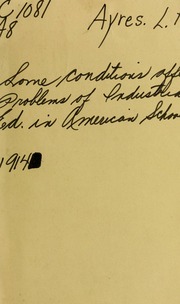 G.1081
A8
Ayres. L.
Some conditions affe
Problems of Industria
Ed. in American Schoo
1914